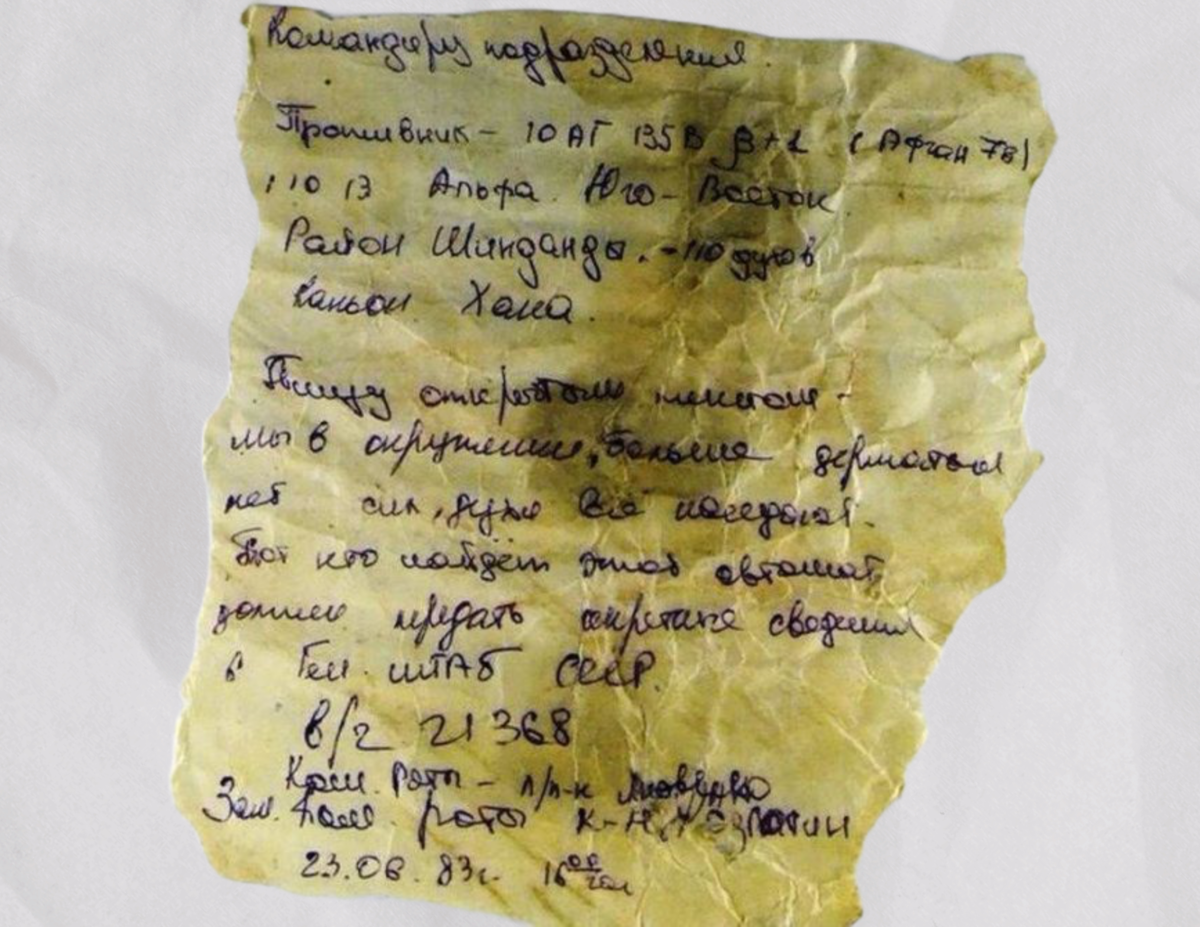 Командиру подразделения.
Противник - 10 АГ 135В β+1 (Афган 78)
110 13 Альфа. Юго-Восток
Район Шинданда. - 110 духов
Каньон Хана.
Пишу открытым текстом -
мы в окружении, больше держаться
нет сил, духи всё наседают.
Тот кто найдёт этот автомат
должен передать секретные сведения
в Ген. штаб СССР.
в/ч 21368
Ком. Роты - п/п-к
Зам. Ком. роты к-н
23.06.83г. 16 00